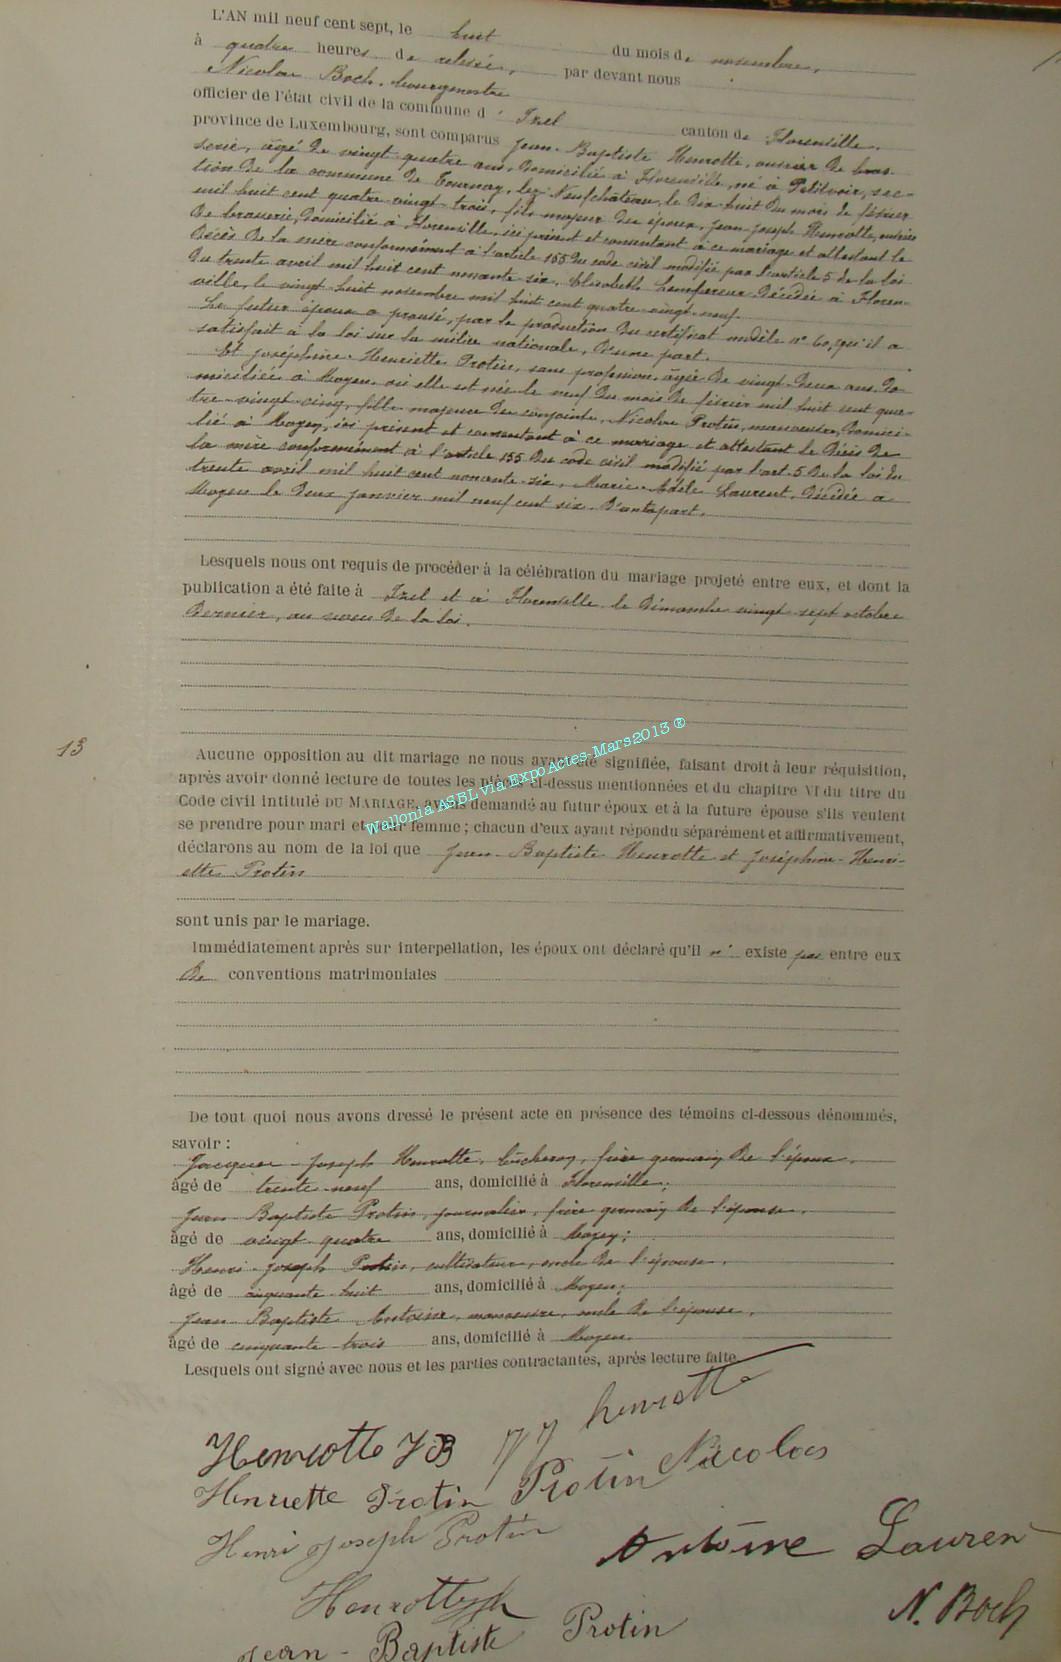 L'AN mil neuf cent sept, le huit du mois de novembre,
à quatre heures de relevée, par devant nous
Nicolas Boch, bourgmestre
officier de l'état civil de la commune d' Izel canton de Florenville,
province de Luxembourg, sont comparus Jean-Baptiste Henrotte, ouvrier de bras-
serie, âgé de vingt-quatre ans, domicilié à Florenville, né à Petitvoir, sec-
tion de la commune de Tournay, lez-Neufchâteau, le dix-huit du mois de février
mil huit cent quatre-vingt-trois, fils majeur des époux, Jean-Joseph Henrotte, ouvrier
de brasserie, domicilié à Florenville, ici présent et consentant à ce mariage et attestant le
décès de la mère conformément à l'article 155 du code civil modifié par l'article 5 de la loi
du trente avril mil huit cent nonante-six, Elisabeth décédée à Floren-
ville, le vingt-huit novembre mil huit cent quatre-vingt-neuf.
Le futur époux a prouvé, par la production du certificat modèle n° 60, qu'il a
satisfait à la loi sur la milice nationale, d'une part.
Et Joséphine-Henriette Protin, sans profession, âgée de vingt-deux ans, do-
miciliée à Moyen, où elle est née le neuf du mois de février mil huit cent qua-
tre-vingt-cinq, fille majeure des conjoints, Nicolas Protin, manoeuvre, domici-
lié à Moyen, ici présent et consentant à ce mariage et attestant le décès de
la mère conformément à l'article 155 du code civil modifié par l'art. 5 de la loi du
trente avril mil huit cent nonante-six, Marie-Adèle Laurent, décédée à
Moyen le deux janvier mil neuf cent six. D'autre part.
Lesquels nous ont requis de procéder à la célébration du mariage projeté entre eux, et dont la
publication a été faite à Izel et à Florenville le dimanche vingt-sept octobre
dernier, au voeu de la loi.
13
Aucune opposition au dit mariage ne nous ayant été signifiée, faisant droit à leur réquisition,
après avoir donné lecture de toutes les pièces ci-dessus mentionnées et du chapitre VI du titre du
Code civil intitulé DU MARIAGE, avons demandé au futur époux et à la future épouse s'ils veulent
se prendre pour mari et pour femme ; chacun d'eux ayant répondu séparément et affirmativement,
déclarons au nom de la loi que Jean-Baptiste Henrotte et Joséphine-Henri-
ette Protin
Wallonia ASBL via ExpoActes-Mars2013 ®
sont unis par le mariage.
Immédiatement après sur interpellation, les époux ont déclaré qu'il n' existe pas entre eux
de conventions matrimoniales
De tout quoi nous avons dressé le présent acte en présence des témoins ci-dessous dénommés,
savoir :
Jacques-Joseph Henrotte, bûcheron, frère germain de l'époux,
âgé de trente-neuf ans, domicilié à Florenville ;
Jean Baptiste Protin, journalier, frère germain de l'épouse,
âgé de vingt-quatre ans, domicilié à Moyen ;
Henri-Joseph Protin, cultivateur, oncle de l'épouse,
âgé de cinquante-huit ans, domicilié à Moyen ;
Jean Baptiste Antoine, manoeuvre, oncle de l'épouse,
âgé de cinquante-trois ans, domicilié à Moyen.
Lesquels ont signé avec nous et les parties contractantes, après lecture faite.
Henrotte JB JJ henrotte
Henriette Protin Protin Nicolas
Henri Joseph Protin Antoine Lauren
Henrotte N. Boch
Jean-Baptiste Protin